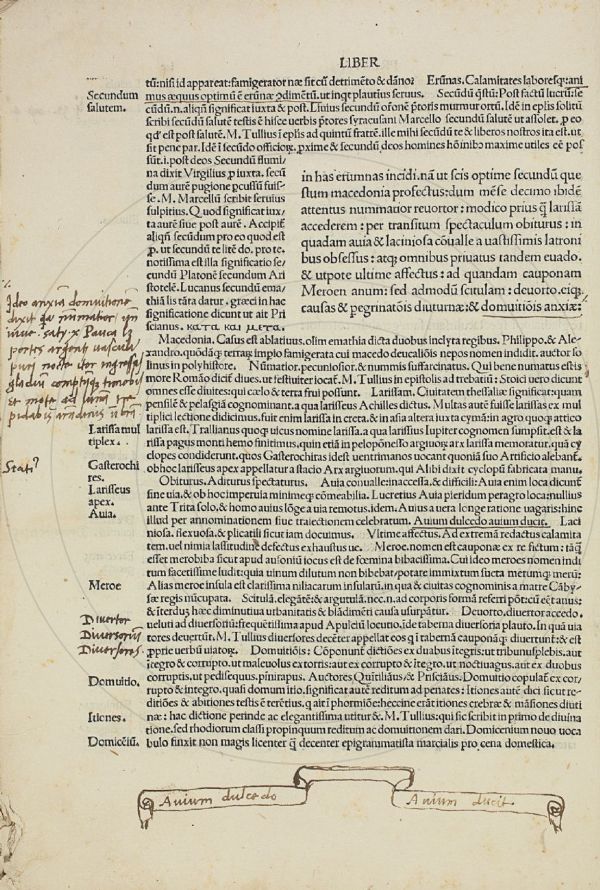 LIBER
tũ: nisi id appareat: famigerator næ sit cũ detrimẽto & dãno: Erũnas. Calamitates laboresq; ani
Secundum salutem.
mus æquus optimũ ẽ erũnæ ꝯdimẽtũ. ut inqt plautius seruus. Secũdũ q̃stũ: Post factũ lucrũ: se
cũdũ. n. aliqñ significat iuxta & post. Liuius secundũ
scribi secũdũ salutẽ testis ẽ hisce uerbis
eo qd' est post salutẽ. M. Tullius ĩ eplis ad quintũ fratrẽ. ille mihi secũdũ te & liberos nostros ita est. ut
sit pene par. Idẽ ĩ secũdo officiorꝝ. ꝓxime & secundũ deos homines hõinibo maxime utiles eẽ pos
sũt. i. post deos Secundũ flumi/
na dixit Virgilius ꝓ iuxta. secũ
dum aurẽ pugione pcussũ fuis/
se. M. Marcellũ scribit seruius
sulpitius. Quod significat iux/
ta aurẽ siue post aurẽ. Accipit̃
aliqñ secũdum pro eo quod est
ꝓ. ut secundũ te litẽ do. pro te.
notissima est illa significatio se/
cundũ Platonẽ secundum Ari
stotelẽ. Lucanus secundũ ema/
thiã lis tãta datur. græci in hac
significatione dicunt ut ait Pri
scianus. κατα και μετα.
in has erumnas incidi. nã ut scis optime secundũ que
stum macedonia profectus: dum mẽse decimo ibidẽ
attentus nummatior reuortor: modico prius q̃ larissã
accederem: per transitum spectaculum obiturus: in
quadam auia & laciniosa cõualle a uastissimis latroni
bus obsessus: atq; omnibus priuatus tandem euado.
& utpote ultime affectus: ad quandam cauponam
Meroen anum: sed admodũ scitulam: deuorto. eiq;
causas & pegrinatõis diuturnæ: & domuitiõis anxiæ:
Ideo anxiam domuitionẽ
dixit
Macedonia. Casus est ablatiuus. olim emathia dicta duobus inclyta regibus. Philippo. & Ale/
xandro. quódáq; terraꝝ impio famigerata cui macedo deucaliõis nepos nomen indidit. auctor so
linus in polyhistore. Nũmatior. pecuniosior. & nummis suffarcinatus. Qui bene numatus est is
more Romão dicit̃ diues. ut festiuiter iocat̃. M. Tullius in epistolis ad trebatiũ: Stoici uero dicunt
omnes esse diuites: qui cælo & terra frui possunt. Larissam. Ciuitatem thessaliæ significat: quam
pensilẽ & pelasgiã cognominant. a qua larisseus Achilles dictus. Multas autẽ fuisse larissas ex mul
tiplici lectione didicimus. fuit enim larissa in creta. & in asia altera iuxta cymã: in agro quoq; attico
larissa est. Trallianus quoq; uicus nomine larissa. a qua larisseus Iupiter cognomen sumpsit. est & la
Larissa mul tiplex.
rissa pagus monti hemo finitimus. quin etiã in peloponẽsso arguiorꝝ arx larissa memoratur. quã cy
clopes condiderunt. quos Gasterochiras idest uentrimanos uocant quoniã suo Artificio alebant̃.
Stati?
Gasterochi res.
ob hoc larisseus apex appellatur a stacio Arx arguiorum. qui Alibi dixit cyclopũ fabricata manu.
Larisseus apex.
Obiturus. Aditurus spectaturus. Auia conualle: inaccessa. & difficili: Auia enim loca dicunt̃
sine uia. & ob hoc imperuia minimeq; cõmeabilia. Lucretius Auia pieridum peragro loca: nullius
Auia.
ante Trita solo. & homo auius lõge a uia remotus. idem. Auius a uera longe ratione uagaris: hinc
illud per annominationem siue traiectionem celebratum. Auium dulcedo auium ducit. Laci
niosa. flexuosa. & plicatili sicut iam docuimus. Vltime affectus. Ad extremã redactus calamita
tem. uel nimia lassitudinẽ defectus exhaustus ue. Meroe. nomen est cauponæ ex re fictum: tãq̃
esset merobiba sicut apud ausoniũ iocus est de fœmina bibacissima. Cui ideo meroes nomen indi
tum facetissime ludit: quia uinum dilutum non bibebat/potare immixtum sueta merumq; merũ:
Meroe
Alias meroe insula est clarissima niliacarum insularũ. in qua & ciuitas cognominis a matre Cãby/
sæ regis nũcupata. Scitulã. elegãtẽ: & argutulã. nec. n. ad corporis formã referri põt: cũ eẽt anus:
& ĩterdũ hæc diminutiua urbanitatis & blãdimẽti causa usurpãtur. Deuorto. diuertor accedo.
Divertor
Diversorius
Diversores
ueluti ad diuersoriũ: frequẽtissima apud Apuleiũ locutio. ide taberna diuersoria plauto. In quã uia
tores deuertũt. M. Tullius diuersores decẽter appellat eos q ĩ tabernã cauponãq; diuertunt: & est
ꝓprie uerbũ uiatorꝝ. Domuitiõis: Cõponunt̃ dictiões ex duabus ĩtegris: ut tribunusplebis. aut
ĩtegro & corrupto. ut maleuolus ex torris: aut ex corrupto & ĩtegro. ut noctiuagus. aut ex duobus
Domuitio.
corruptis. ut pedisequus. pinirapus. Auctores Quĩtiliãus & Prisciãus. Domuitio copulat̃ ex cor/
rupto & integro. quasi domum itio. significat autẽ reditum ad penates: Itiones autẽ dici sicut re
ditiões & abitiones testis ẽ terẽtius. q ait ĩ phormiõe: heccine erãt itiones crebræ & mãsiones diuti
Itiones.
næ: hac dictione perinde ac elegantissima utitur &. M. Tullius: qui sic scribit in primo de diuina
tione. sed rhodiorum classi propinquum reditum ac domuitionem dari. Domicenium nouo uoca
Domiceĩũ.
bulo finxit non magis licenter q̃ decenter epigrammatista marcialis pro cena domestica.
Avium dulcedo Avium ducit